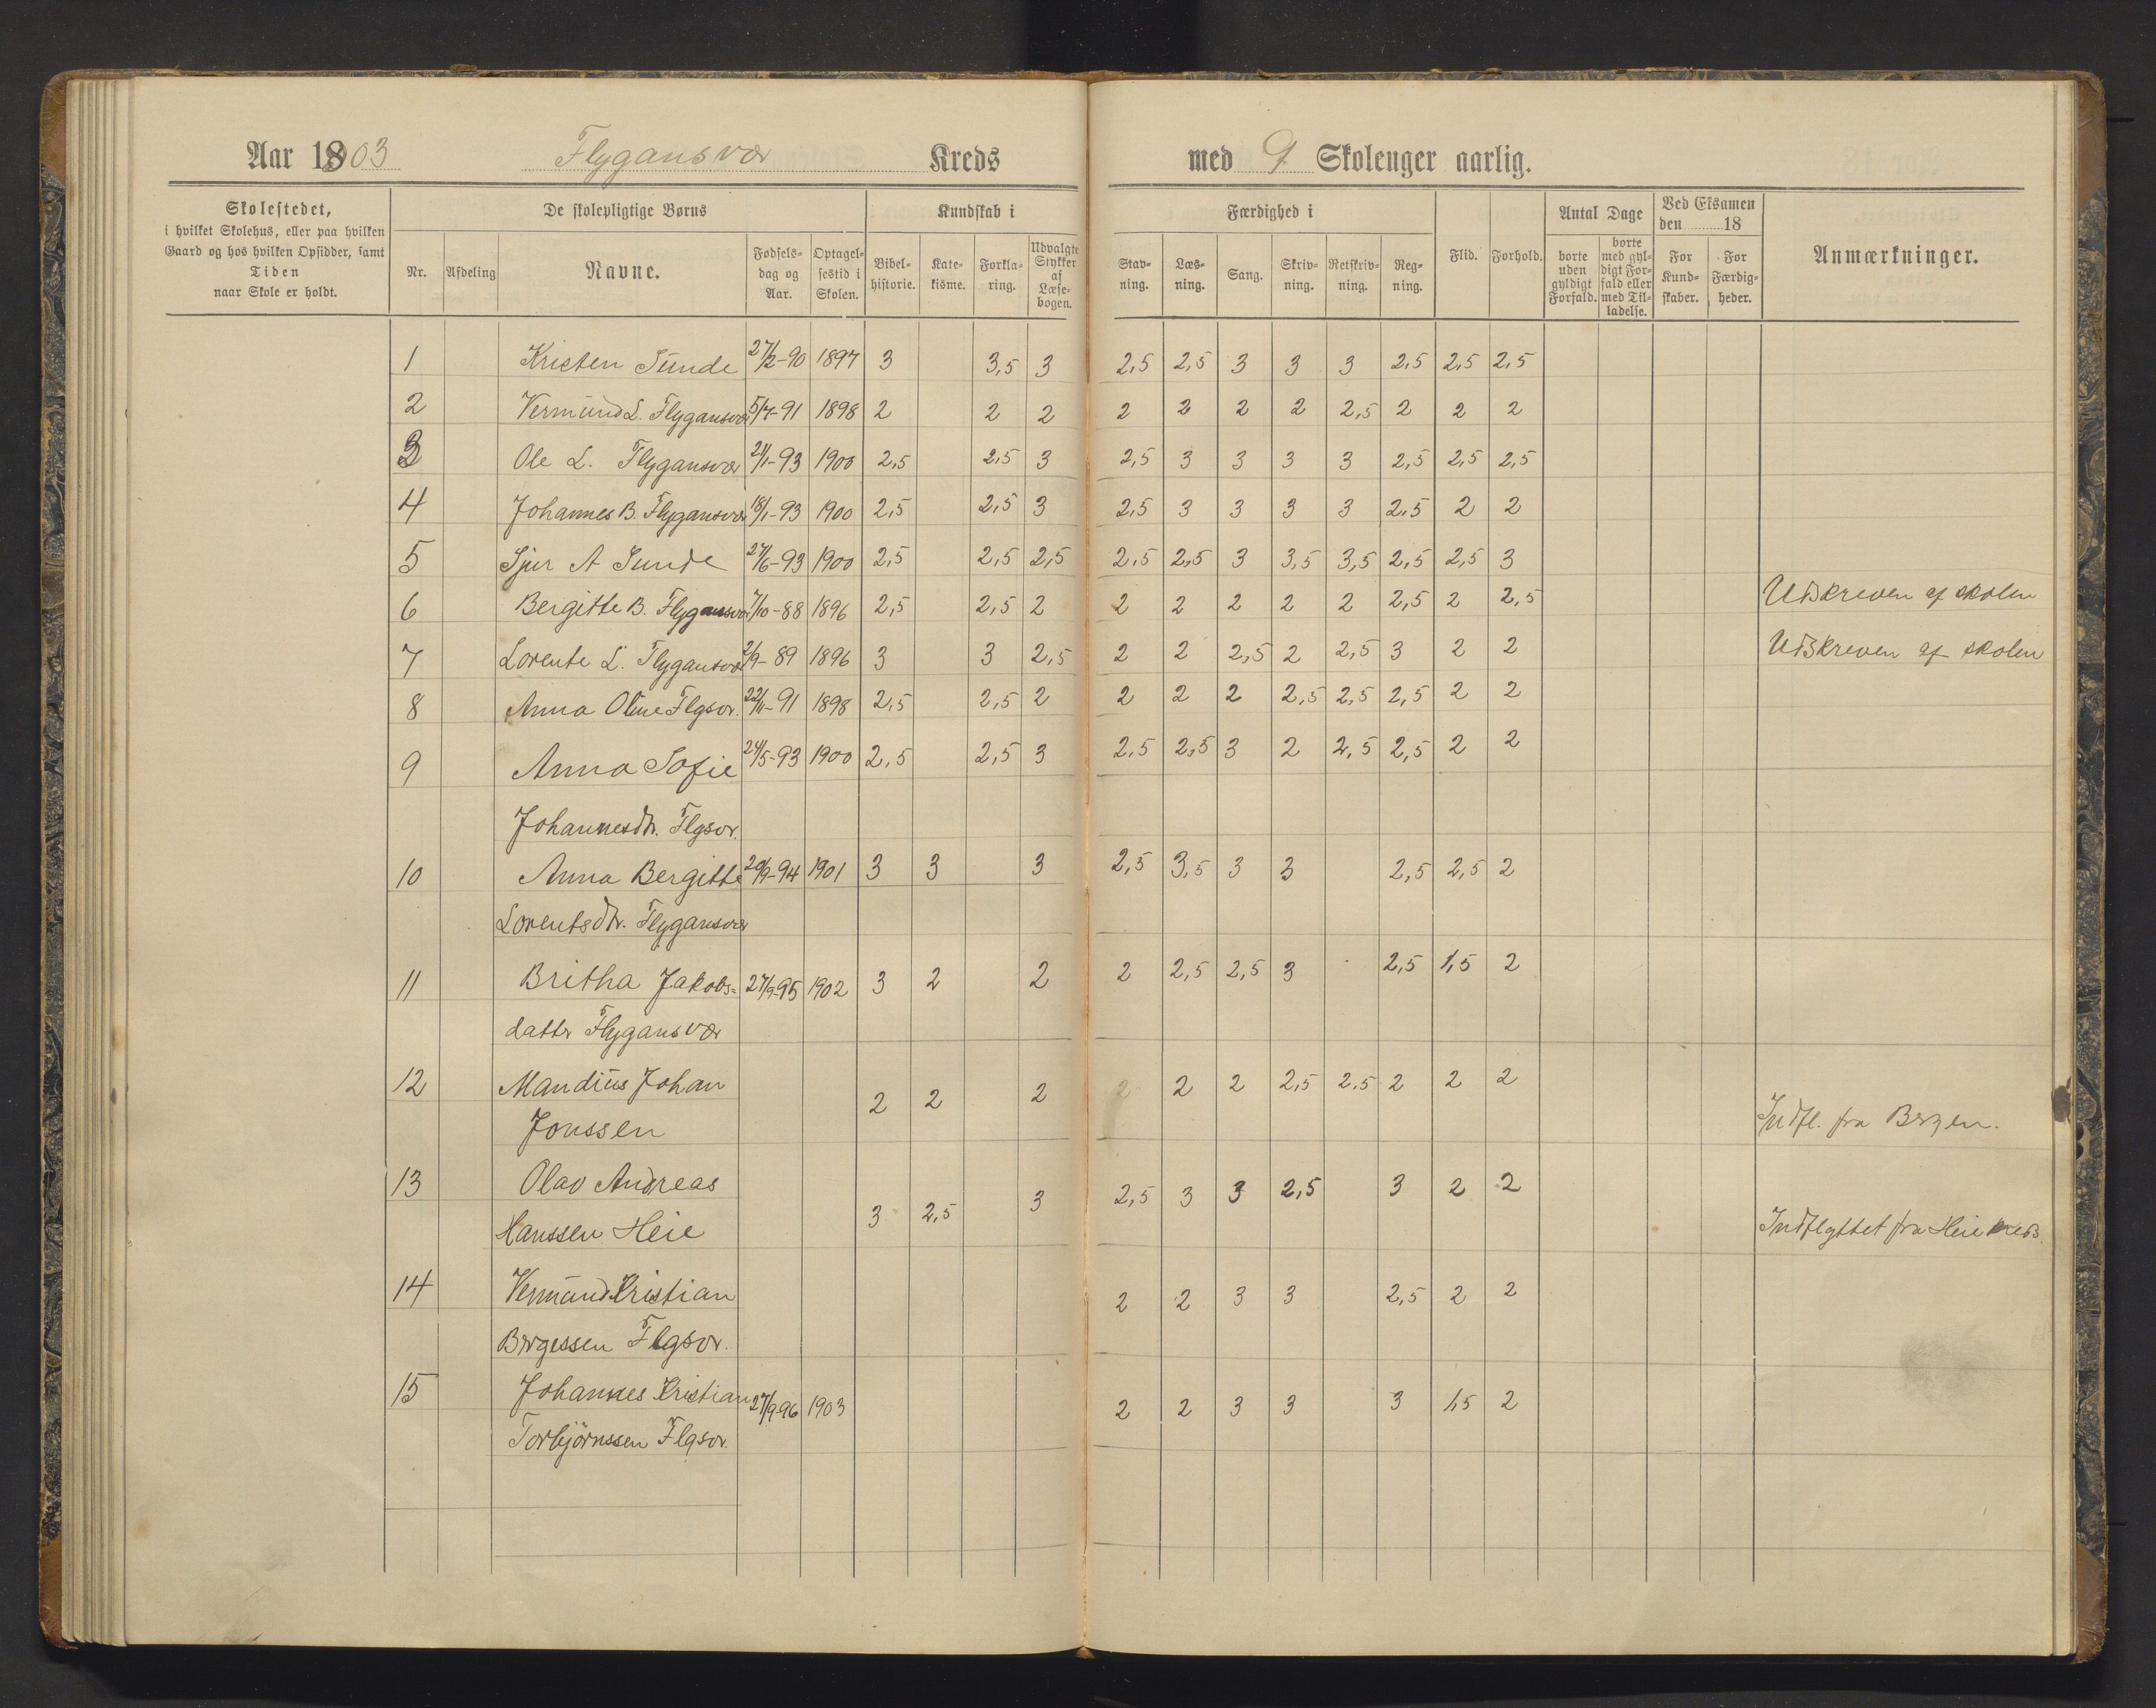 Aar 1903 Flygansvær Kreds med 9 Skoleuger aarlig.
Skolestedet,
i hvilket Skolehus, eller paa hvilken
Gaard og hos hvilken Opsidder, samt
Tiden
naar Skole er holdt.
De skolepligtige Børns
Nr. Afdeling Navne. Fødsels-
dag og
Aar.
Optagel-
sestid i
Skolen.
Kundskab i
Bibel-
historie.
Kate-
kisme.
Forkla-
ring.
Udvalgte
Stykker
af
Læse-
bogen.
Færdighed i
Stav-
ning.
Læs-
ning.
Sang.
Skriv-
ning.
Retskriv-
ning.
Reg-
ning.
Flid. Forhold.
Antal Dage
borte
uden
gyldigt
Forfald.
borte
med gyl-
digt For-
fald eller
med Til-
ladelse.
Ved Eksamen
den 18
For
Kund-
skaber.
For
Færdig-
heder.
Anmærkninger.
1 Kristen Sunde 27/2-90 1897 3 3,5 3 2,5 2,5 3 3 3 2,5 2,5 2,5
2 Vermund L. Flygansvær 5/7-91 1898 2 2 2 2 2 2 2 2,5 2 2 2
3 Ole L. Flygansvær 21/1-93 1900 2,5 2,5 3 2,5 3 3 3 3 2,5 2,5 2,5
4 Johannes B. Flygansvær 18/1-93 1900 2,5 2,5 3 2,5 3 3 3 3 2,5 2 2
5 Sjur A Sunde 27/6-93 1900 2,5 2,5 2,5 2,5 2,5 3 3,5 3,5 2,5 2,5 3
6 Bergitte B. Flygansvær 7/10-88 1896 2,5 2,5 2 2 2 2 2 2 2,5 2 2,5 Udskreven af skolen
7 Lorente L. Flygansvær 2/9-89 1896 3 3 2,5 2 2 2,5 2 2,5 3 2 2 Udskreven af skolen
8 Anna Oline Flgsvr. 22/11-91 1898 2,5 2,5 2 2 2 2 2,5 2,5 2,5 2 2
9 Anna Sofie 24/5-93 1900 2,5 2,5 3 2,5 2,5 3 2 2,5 2,5 2 2
Johannesdtr. Flgsvr.
10 Anna Bergitte 20/9-94 1901 3 3 3 2,5 3,5 3 3 2,5 2,5 2
Lorentsdtr. Flygansvær
11 Britha Jakobs= 27/9-95 1902 3 2 2 2 2,5 2,5 3 2,5 1,5 2
datter Flygansvær
12 Mandius Johan 2 2 2 2 2 2 2,5 2,5 2 2 2
Jonssen Indfl. fra Bergen.
13 Olav Andreas 3 2,5 3 2,5 3 3 2,5 3 2 2
Hanssen Heie Indflyttet fra Heie kreds.
14 Vermund Kristian 2 2 3 3 2,5 2 2
Birgessen Flgsvr.
15 Johannes Kristian 27/9-96 1903 2 2 3 3 3 1,5 2
Torbjörnssen Flgsvr.